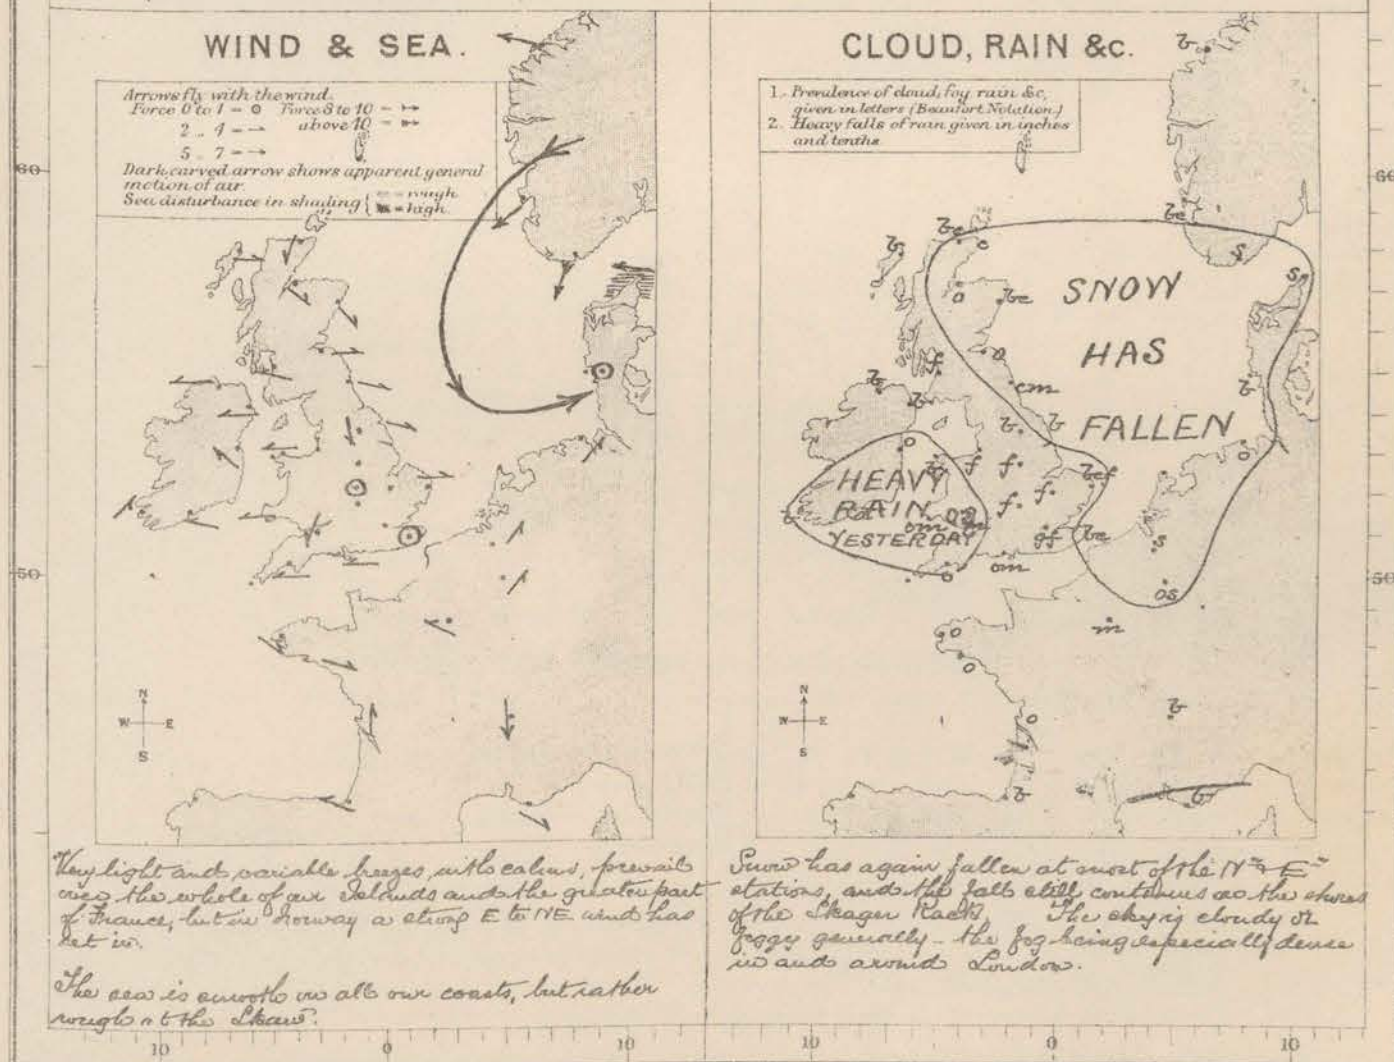 WIND & SEA.
Arrows fly with the wind.
Force 0 to 1 = ⊙ Force 8 to 10 =
2 .. 4 = above 10 =
5 .. 7 =
Dark curved arrow shows apparent general
motion of air.
Sea disturbance in shading { = rough
= high
60
50
N
W E
S
Very light and variable breezes, with calms, prevail
over the whole of our Islands and the greater part
of France, but in Norway a strong E to NE wind has
set in.
The sea is smooth on all our coasts, but rather
rough at the Skaw.
10 0 10
CLOUD, RAIN &c.
1. Prevalence of cloud, fog, rain &c,
given in letters (Beaufort Notation.)
2. Heavy falls of rain given in inches
and tenths
60
50
b
bc
b
bc
c
s
s
o
bc
SNOW
HAS
FALLEN
o
f
cm
b
b
b
b
b
o
o
f
f
bcf
HEAVY
RAIN
YESTERDAY
b
f
f
om
gf
bc
s
om
o
os
m
o
o
o
b
b
b
N
W E
S
Snow has again fallen at most of the Nn & En
stations, and the fall still continues on the shores
of the Skager Rack. The sky is cloudy or
foggy generally - the fog being especially dense
in and around London.
10 0 10